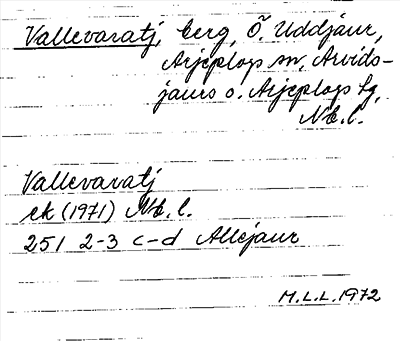 Vallevaratj, berg, Ö. Uddjaur,
Arjeplogs sn, Arvids-
jaurs o. Arjeplogs tg,
Nb. l.
Vallevaratj
ek (1971) Nb. l.
251 2-3 c-d Allejaur
M.L.L. 1972